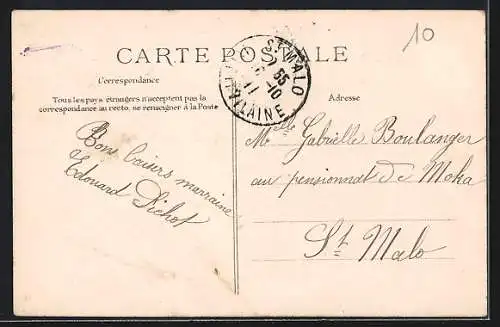 10
CARTE POSTALE
Correspondance
Tous les pays étrangers n'acceptent pas la
correspondance au recto, se renseigner à la Poste
Bons baisers marraine
Edouard Pichot
ST MALO
55
10
11
ILLE-VILAINE
Adresse
Melle Gabrielle Boulanger
au pensionnat de Moka
St Malo